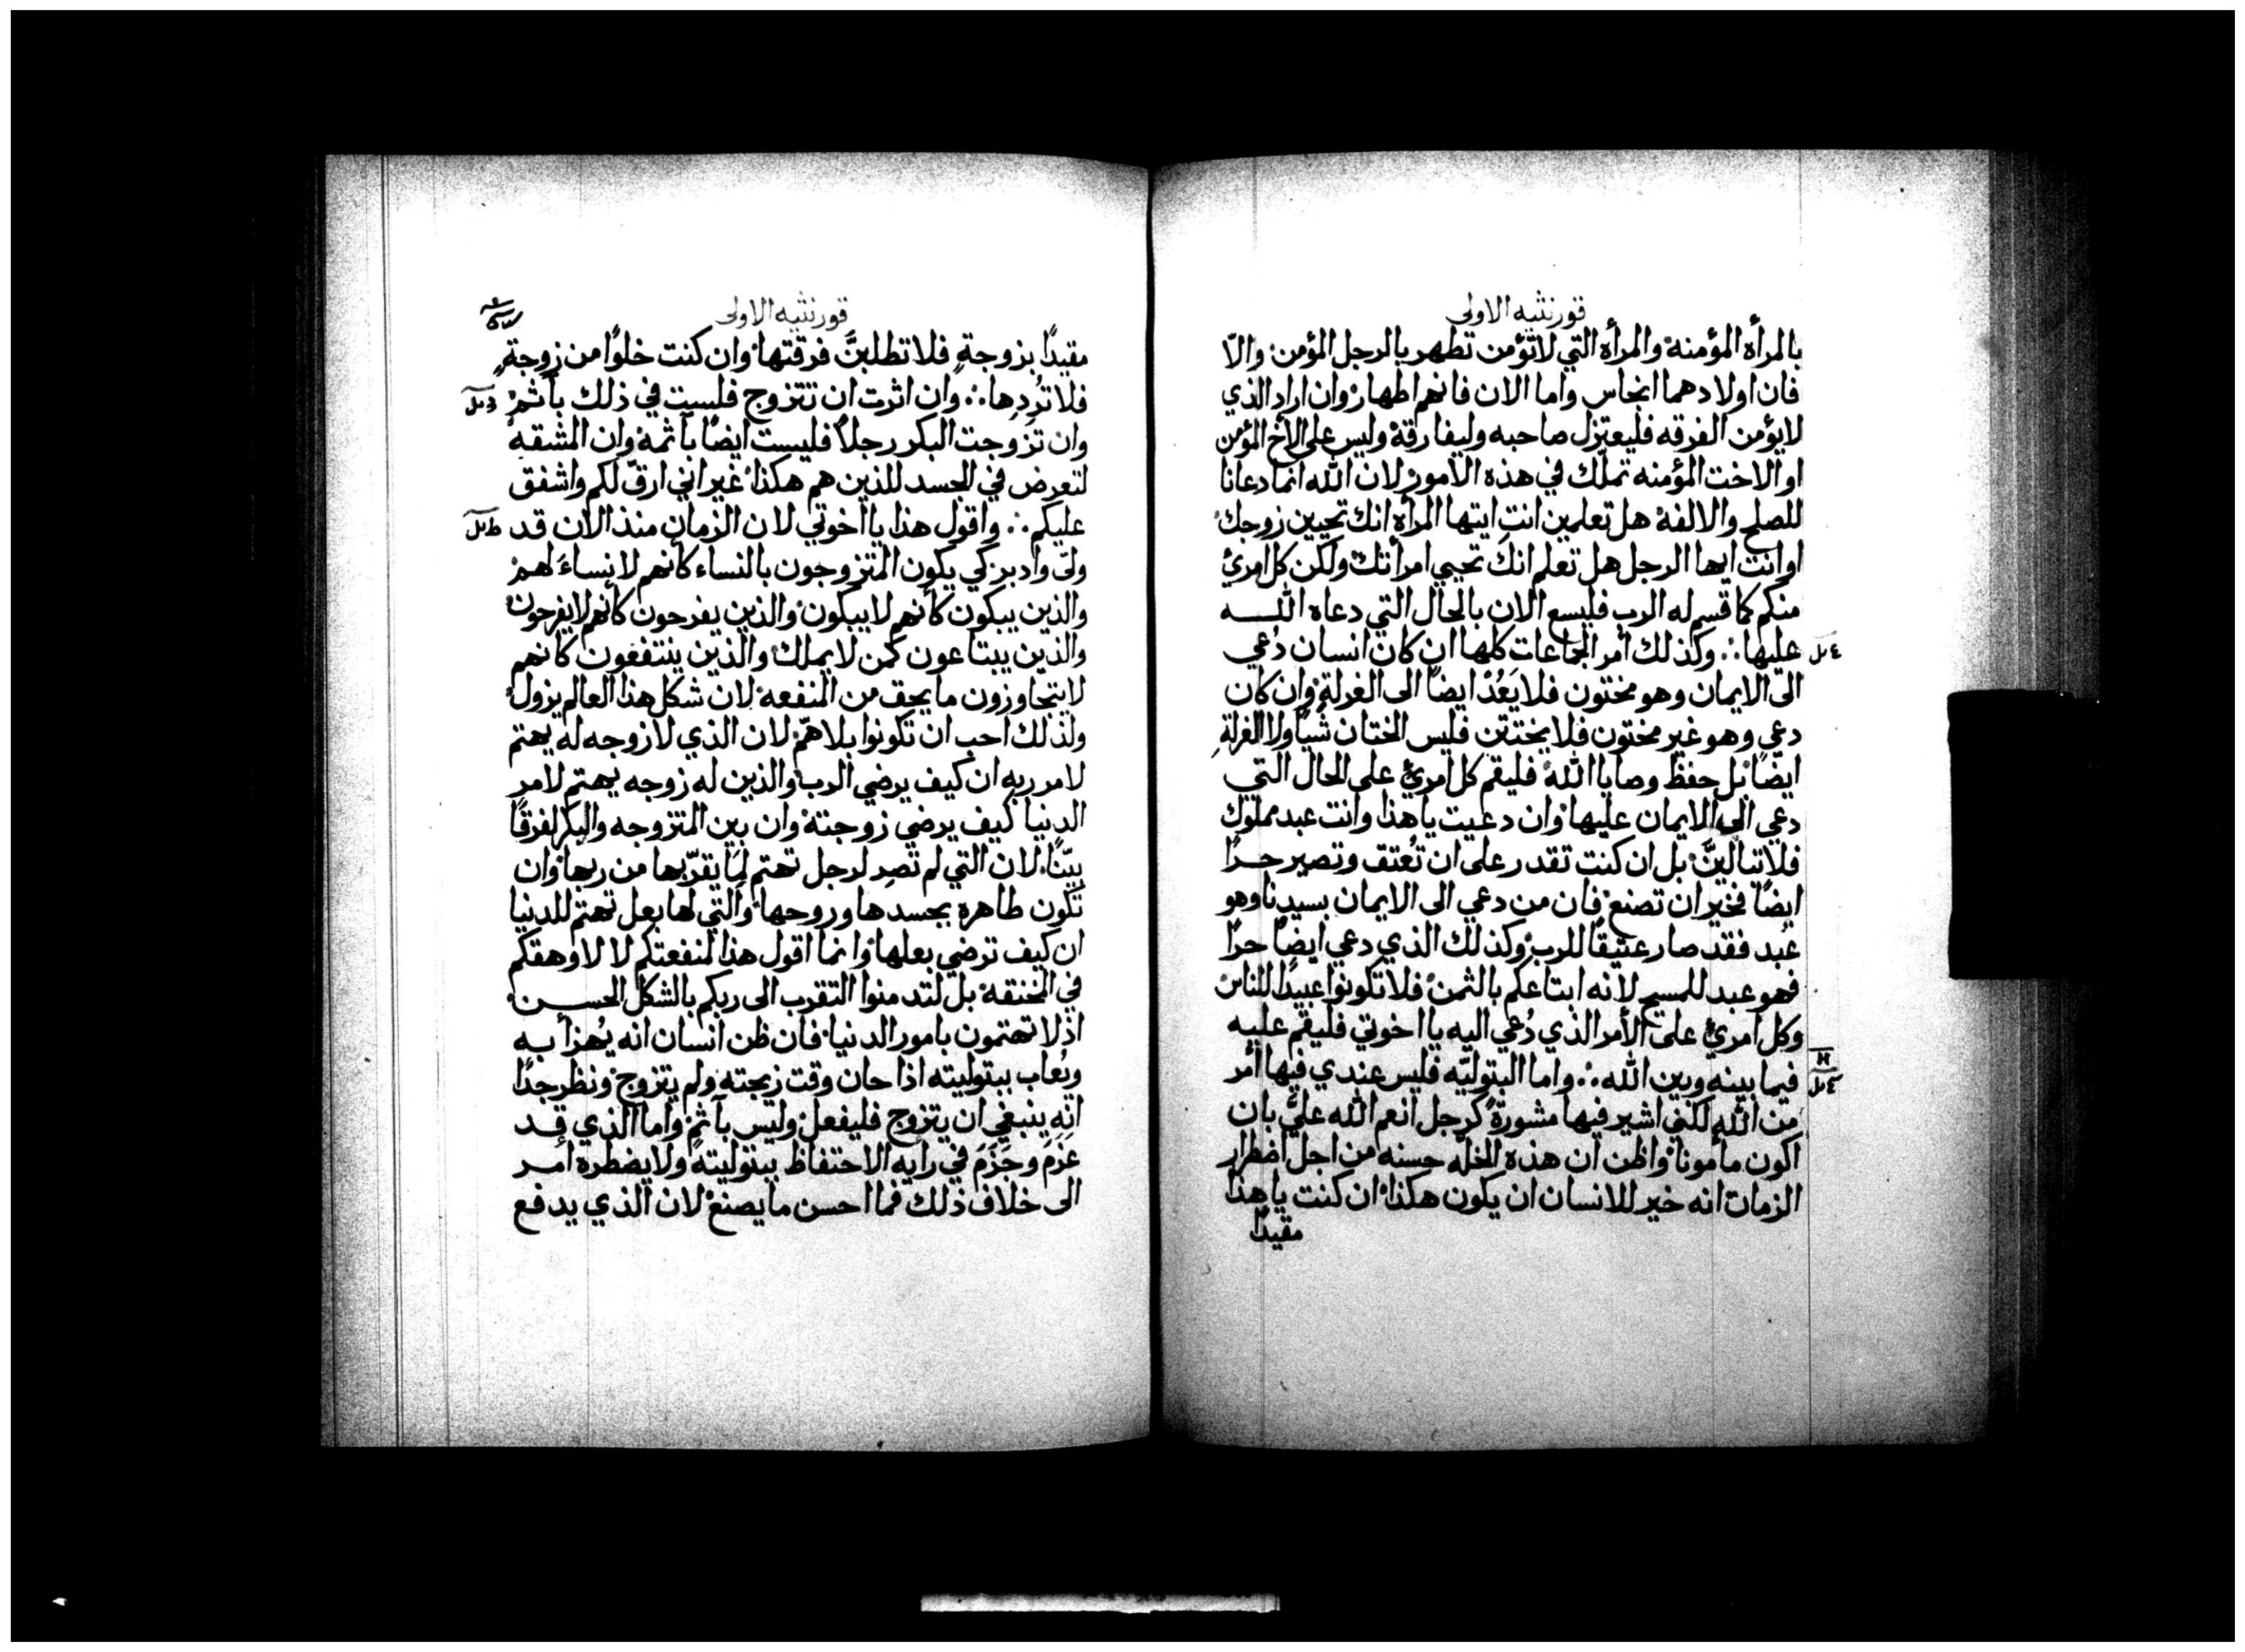 قورنثيه الاولى
بالمرأه المؤمنة والمرأه التي لاتؤمن تطهر بالرجل المؤمن والّا
فان اولادهما انجاس واما الان فانهم اطهار وان اراد الذي
لايؤمن الفرقه فليعتزل صاحبه وليفارقة وليس على الاخ المؤمن
او الاخت المؤمنه تملّك في هذه الامور لان الله انما دعانا
للصلح والالفة هل تعلمين انتِ ايتها المرأه انك تحيين زوجك
او انت ايها الرجل هل تعلم انك تحيي امرأتك ولكن كل امرئ
منكم كما قسم له الرب فليسع الان بالحال التي دعاه الله
عليها ∴ وكذلك أمر الجماعات كلها ان كان انسان دُعي
الى الايمان وهو مختون فلا يَعُدْ ايضًا الى الغرلة وان كان
دعي وهو غير مختون فلا يختتن فليس الختان شيًا ولا الغرلةِ
ايضًا بل حفظ وصايا الله فليقم كل امرئ على الحال التي
دعي الى الايمان عليها وان دعيت ياهذا وانت عبد مملوك
فلا تبالينَّ بل ان كنت تقدر على ان تُعتق وتصير حرًا
ايضًا فخير ان تصنع فان من دعي الى الايمان بسيدنا وهو
عبد فقد صار عتيقًا للرب وكذلك الذي دعي ايضًا حرًا
فهو عبد للمسيح لانه ابتاعكم بالثمن فلا تكونوا عبيدًا للناس
وكل امرئ على الأمر الذي دُعي اليه يا اخوتي فليقم عليه
فيما بينه وبين الله ∴ واما البتوليّه فليس عندي فيها أمر
من الله لكني اشير فيها مشورةً كرجل انعم الله عليَّ بان
اكون مأمونا واظن ان هذه الخلّه حسنه من اجل اضطرار
الزمان انه خير للانسان ان يكون هكذا ان كنت ياهذا
مقيدًا
قورنثيه الاولى
مقيدًا بزوجةٍ فلا تطلبنَّ فرقتها وان كنت خلوًا من زوجةٍ
فلا تُرِدها ∴ وان اثرت ان تتزوج فلست في ذلك بآثمٍ
وان تزوجت البكر رجلاً فليست ايضًا بآثمة وان الشقه
لتعرض في الجسد للذين هم هكذا غير اني ارقّ لكم واشفق
عليكم ∴ واقول هذا يا اخوتي لان الزمان منذ الان قد
ولّى وادبر كي يكون المتزوجون بالنساء كأنهم لا نساءَ لهم
والذين يبكون كأنهم لايبكون والذين يفرحون كأنهم لايفرحون
والذين يبتاعون كمن لايملك والذين ينتفعون كانهم
لايتجاوزون مايحق من المنفعه لان شكل هذا العالم يزول
ولذلك احب ان تكونوا بلا همّ لان الذي لا زوجه له يهتم
لامر ربه ان كيف يرضي الرب والذين له زوجه يهتم لامر
الدنيا كيف يرضي زوجتة وان بين المتزوجه والبكر لفرقًا
بيّنًا لان التي لم تصر لرجل تهتم لما يقرّبها من ربها وان
تكون طاهره بجسدها وروحها والتي لها بعل تهتم للدنيا
ان كيف ترضي بعلها وانما اقول هذا لمنفعتكم لا لاوهقكم
في المخنقة بل لتدمنوا التقرب الى ربكم بالشكل الحسن
اذ لا تهتمون بامور الدنيا فان ظن انسان انه يُهزأ به
ويُعاب ببتوليته اذا حان وقت زيجته ولم يتزوج ونظر جدًا
انه ينبغي ان يتزوج فليفعل وليس بآثمٍ واما الذي قد
عَزَمَ وجَزَمَ في رأيه الاحتفاظ ببتوليتة ولا يضطره أمر
الى خلاف ذلك فما احسن ما يصنع لان الذي يدفع